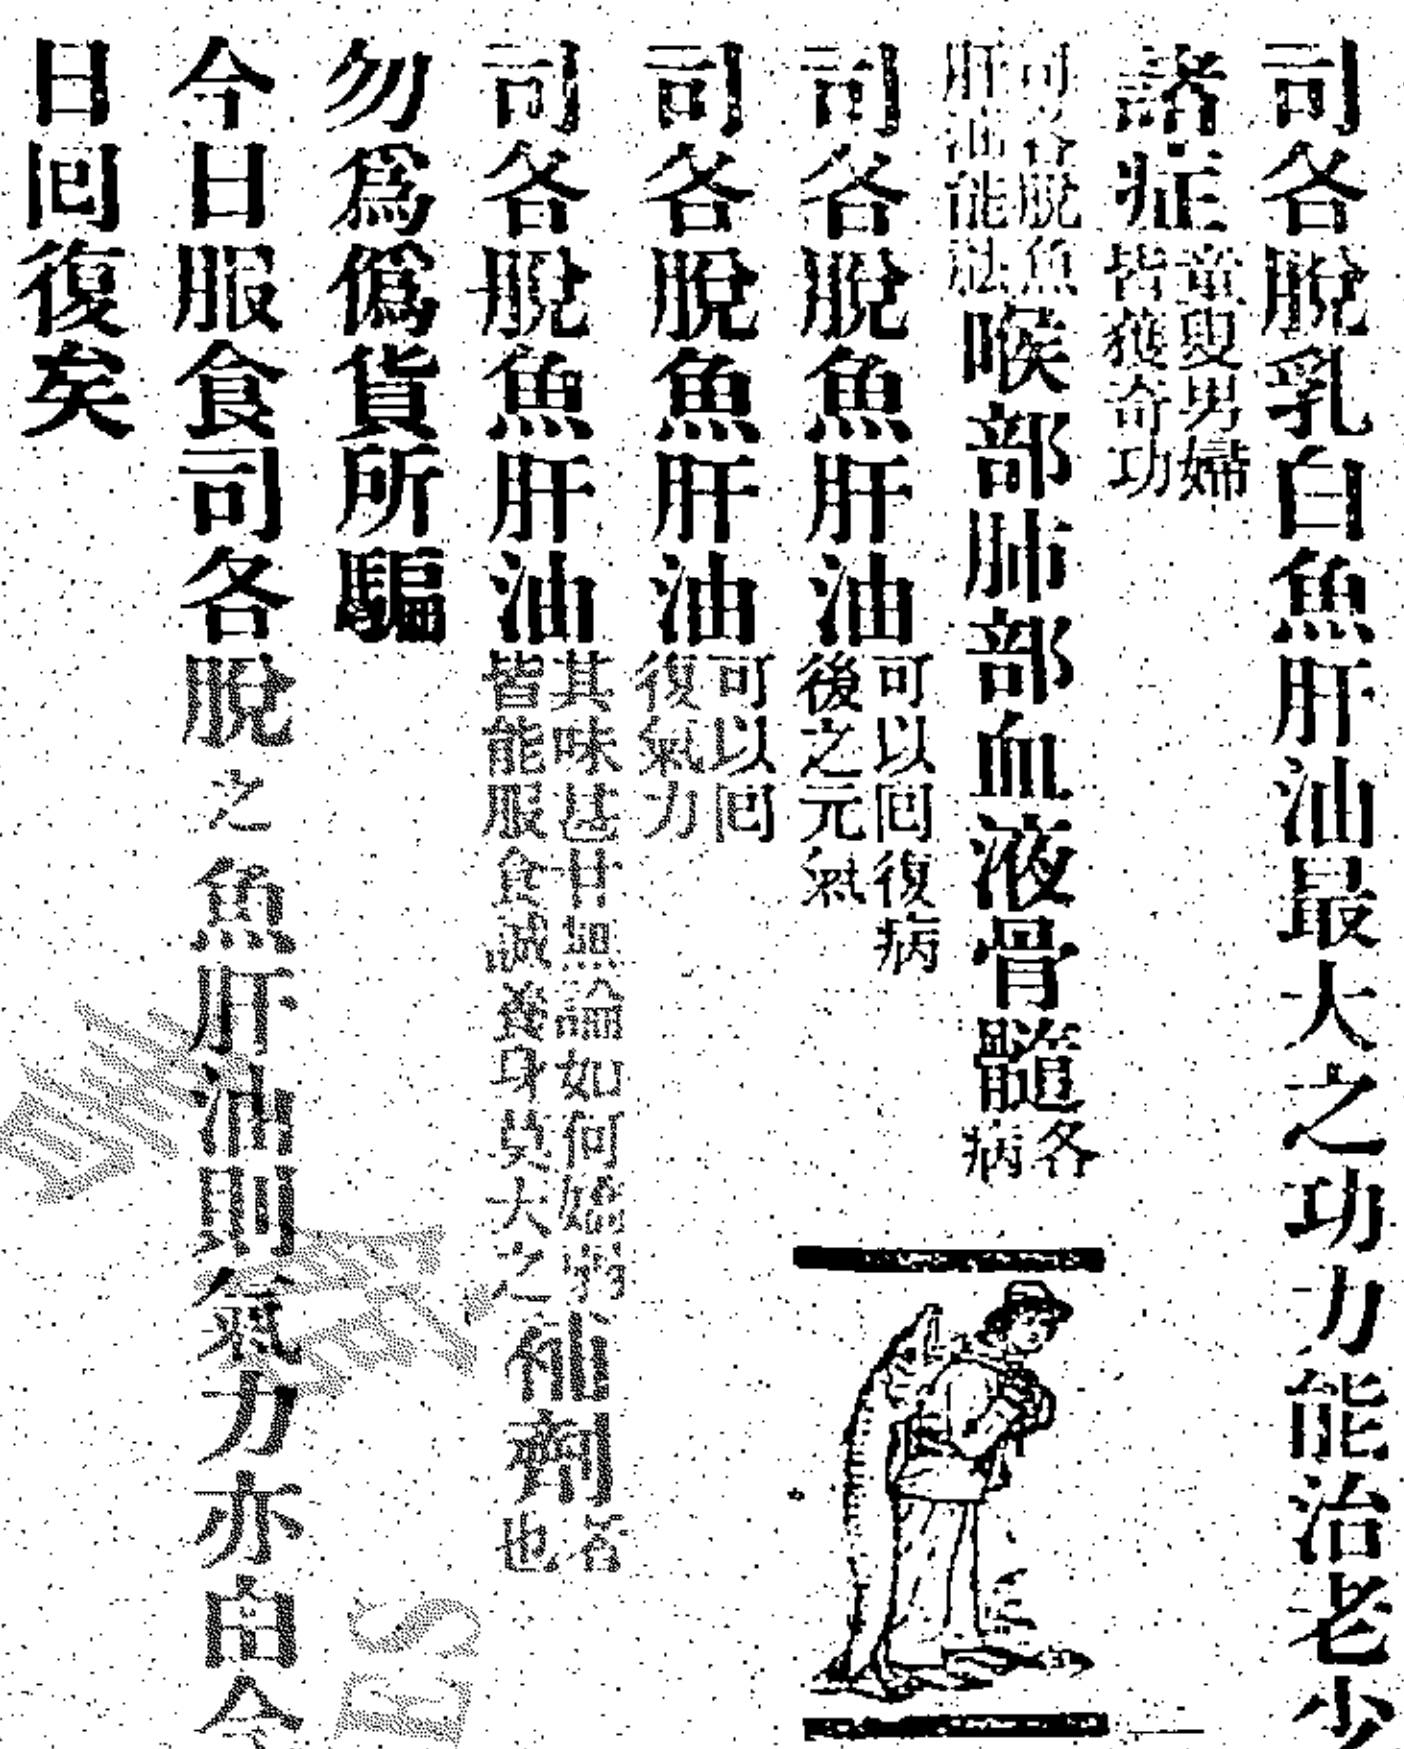 司各脫乳白魚肝油最大之功力能治老少
諸症童叟男婦皆獲奇功
司各脫魚肝油能祛喉部肺部血液骨髓各病
司各脫魚肝油可以囘復病後之元氣
司各脫魚肝油可以囘復氣力
司各脫魚肝油其味甚甘無論如何嬌弱皆能服食誠養身莫大之補劑者也
勿爲僞貨所騙
今日服食司各脫之魚肝油則氣力亦由今
日囘復矣